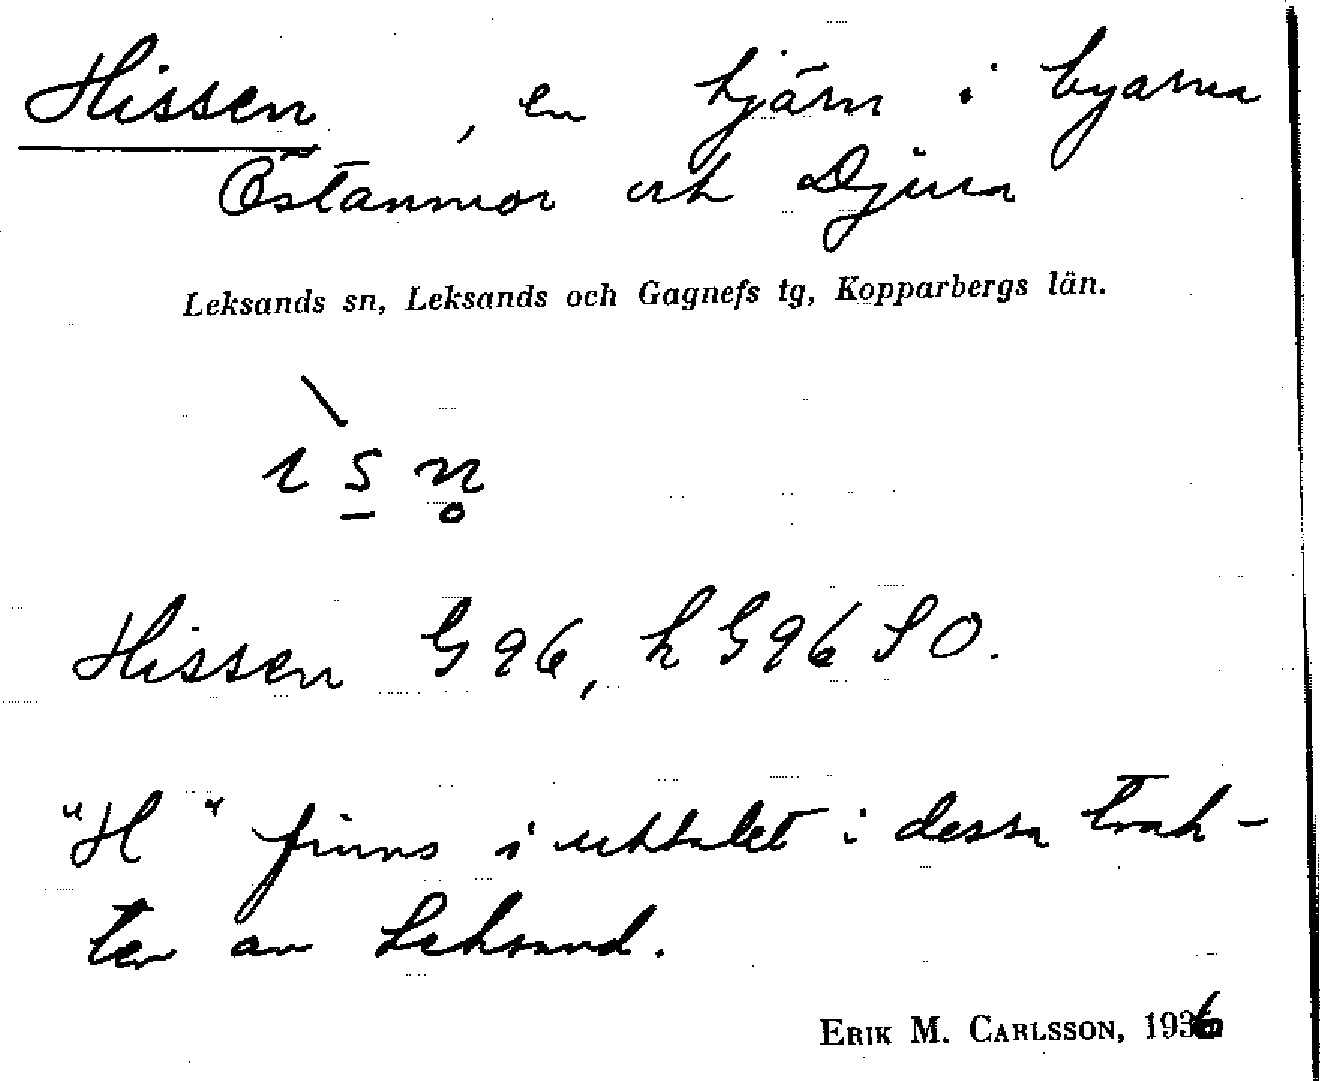 Hissen, en tjärn i byarna
Östanmor och Djura
Leksands sn, Leksands och Gagnefs tg, Kopparbergs län.
ı s̲ n̥
Hissen G 96, h G 96 SO.
"H" finns i uttalet i dessa trak-
ter av Leksand.
ERIK M. CARLSSON, 1936